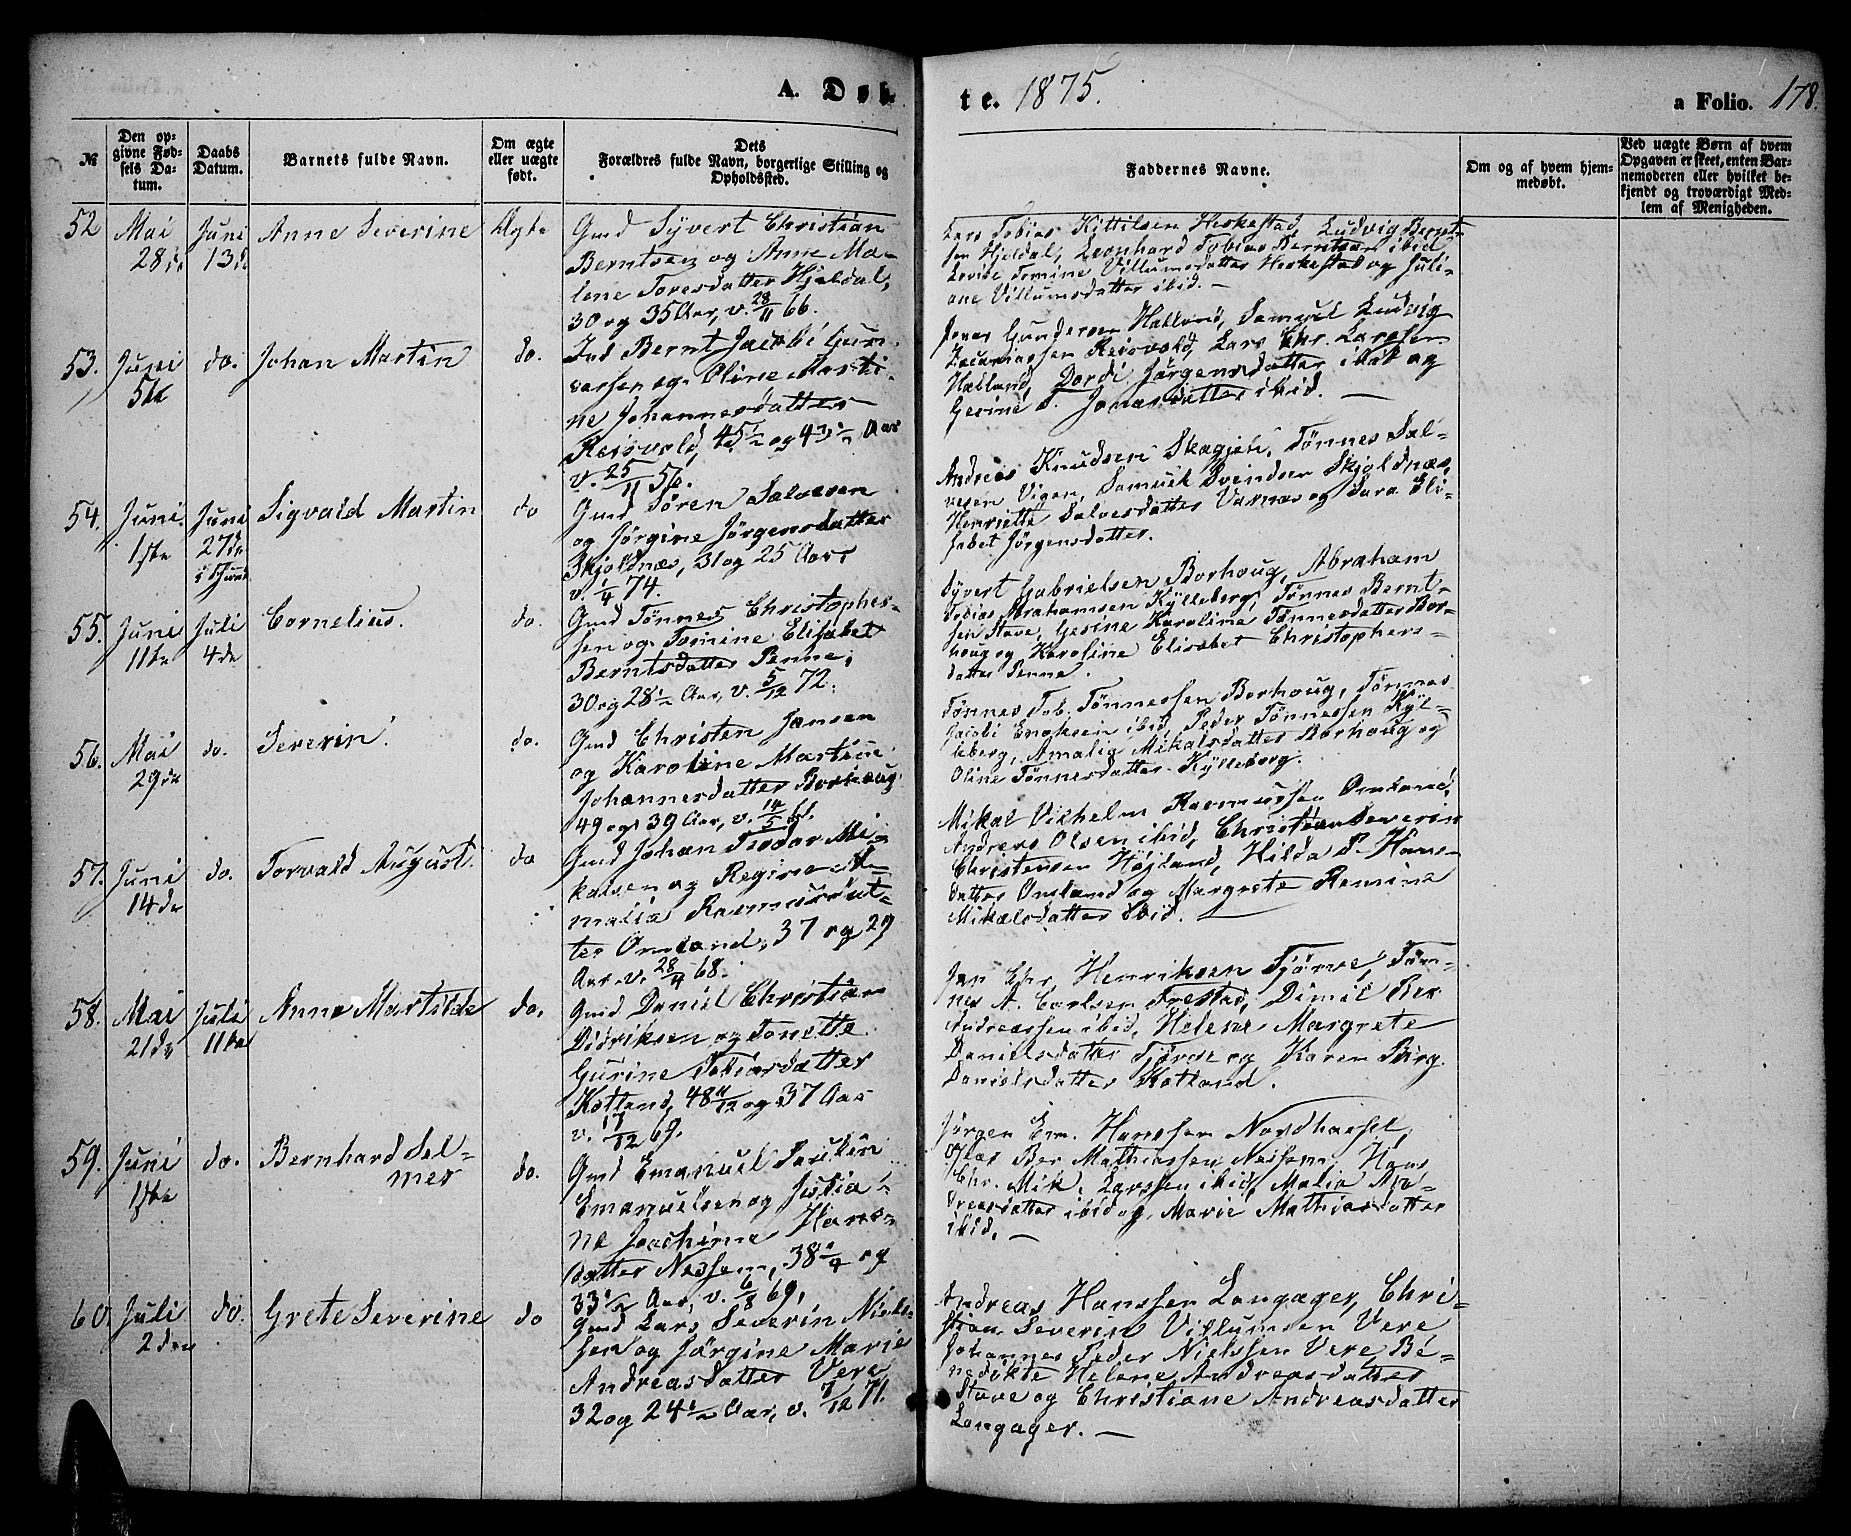 A. Døb-
te. 1875.
a Folio. 178.
№
Den op-
givne Fød-
sels Da-
tum.
Daabs
Datum.
Barnets fulde Navn.
Om ægte
eller uægte
født.
Dets
Forældres fulde Navn, borgerlige Stilling og
Opholdssted.
Faddernes Navne.
Om og af hvem hjem-
medøbt.
Ved uægte Børn af hvem
Opgaven er skeet, enten Bar-
nemoderen eller hvilket be-
kjendt og troværdigt Med-
lem af Menigheden.
52 Mai Juni Anne Severine Ægte
28de 13de
Gmd Syvert Christian
Berntsen og Anne Ma-
lene Toresdatter Hjeldal,
30 og 35 Aar, v. 28/11 66.
Lars Tobias Kittilsen Heskestad, Ludvig Bernt-
sen Hjeldal, Leonhard Tobias Berntsen ibid
Lovise Tomine Villumsdatter Heskestad og Juli-
ane Villumsdatter ibid. —
53. Juni do. Johan Martin do.
5te
Ind Bernt Jacobi Gun-
varsen og Oline Marti-
ne Johannesdatter
Reisvold, 45½ og 43½ Aar
v. 25/11 56.
Jonas Gundersen Hætland, Samuel Ludvig
Zacariassen Reisvold, Lars Chr. Larssen
Hætland, Dordi Jørgensdatter ibid og
Gesine T. Jonasdatter ibid. —
54. Juni Juni Sigvald Martin do
1ste 27de
i
Gmd Søren Salvesen
og Jørgine Jørgensdatter
Skjoldnæs, 31 og 25 Aar
v. 1/4 74.
Andreas Knudsen Skagjeli, Tønnes Sal-
vesen Vigan, Samuel Svendsen Skjoldnæs,
Henriette Salvesdatter Varnæs og Sara Eli-
sabet Jørgensdatter.
55. Juni Juli Cornelius. do.
11te 4de
Gmd Tønnes Christopher-
sen og Tomine Elisabet
Berntsdatter Penne,
30 og 28½ Aar, v. 5/12 72.
Syvert Gabrielsen Borhoug, Abraham
Tobias Abrahamsen Kylleberg, Tønnes Bernt-
sen Stave, Gesine Karoline Tønnesdatter Bor-
houg og Karoline Elisabet Christophers-
datter Penne.
56. Mai do. Severin. do.
29de
Gmd Christen Jansen
og Karoline Martine
Johannesdatter Borhoug
49 og 39 Aar, v. 14/5 61.
Tønnes Tob. Tønnessen Borhoug, Tønnes
Jacobi Enoksen ibid, Peder Tønnessen Kyl-
leberg, Amalia Mikalsdatter Borhoug og
Oline Tønnesdatter Kylleberg.
57. Juni do. Torvald August. do
14de
Gmd Johan Teodor Mi-
kalsen og Regine A-
malia Rasmusdat-
ter Omland, 37 og 29
Aar. v. 28/4 68.
Mikal Vilhelm Rasmussen Omland,
Andreas Olsen ibid, Christian Severin
Christensen Højland, Hilda P. Hans-
datter Omland og Margrete Remine
Mikalsdatter ibid.
58. Mai Juli Anne Martilde do.
21de 11te
Gmd Daniel Christian
Didriksen og Tonette
Gurine Tobiasdatter
Kotland, 48 11/12 og 37 Aar
v. 17/12 69.
Jan Chr. Henriksen Tjørve, Tøn-
nes A. Carlsen Frestad, Ber
Andreassen ibid, Helene Margrete
Danielsdatter Tjørve og Karen Birg.
Danielsdatter Kotland.
59. Juni do. Bernhard Sel- do.
1ste mer
Gmd Emanuel
Emanuelsen og Justia-
ne Joachime Hans-
datter Nessem, 38¼ og
33½ Aar, v. 6/8 69,
Jørgen Em. Hanssen Nordhassel,
Ber Mathiassen Nessem, Hans
Chr. Mik. Larssen ibid, Malia An-
dreasdatter ibid og Marie Mathiasdatter
ibid. —
60. Juli do. Grete Severine do
2den
Gmd Lars Severin Niels-
sen og Jørgine Marie
Andreasdatter Vere
32 og 24½ Aar, v. 7/12 71.
Andreas Hanssen Langager, Chri-
stian Severin Villumsen Vere
Johannes Peder Nielssen Vere Be-
nedikte Helene Andreasdatter
Stave og Christiane Andreasdatter
Langager. —